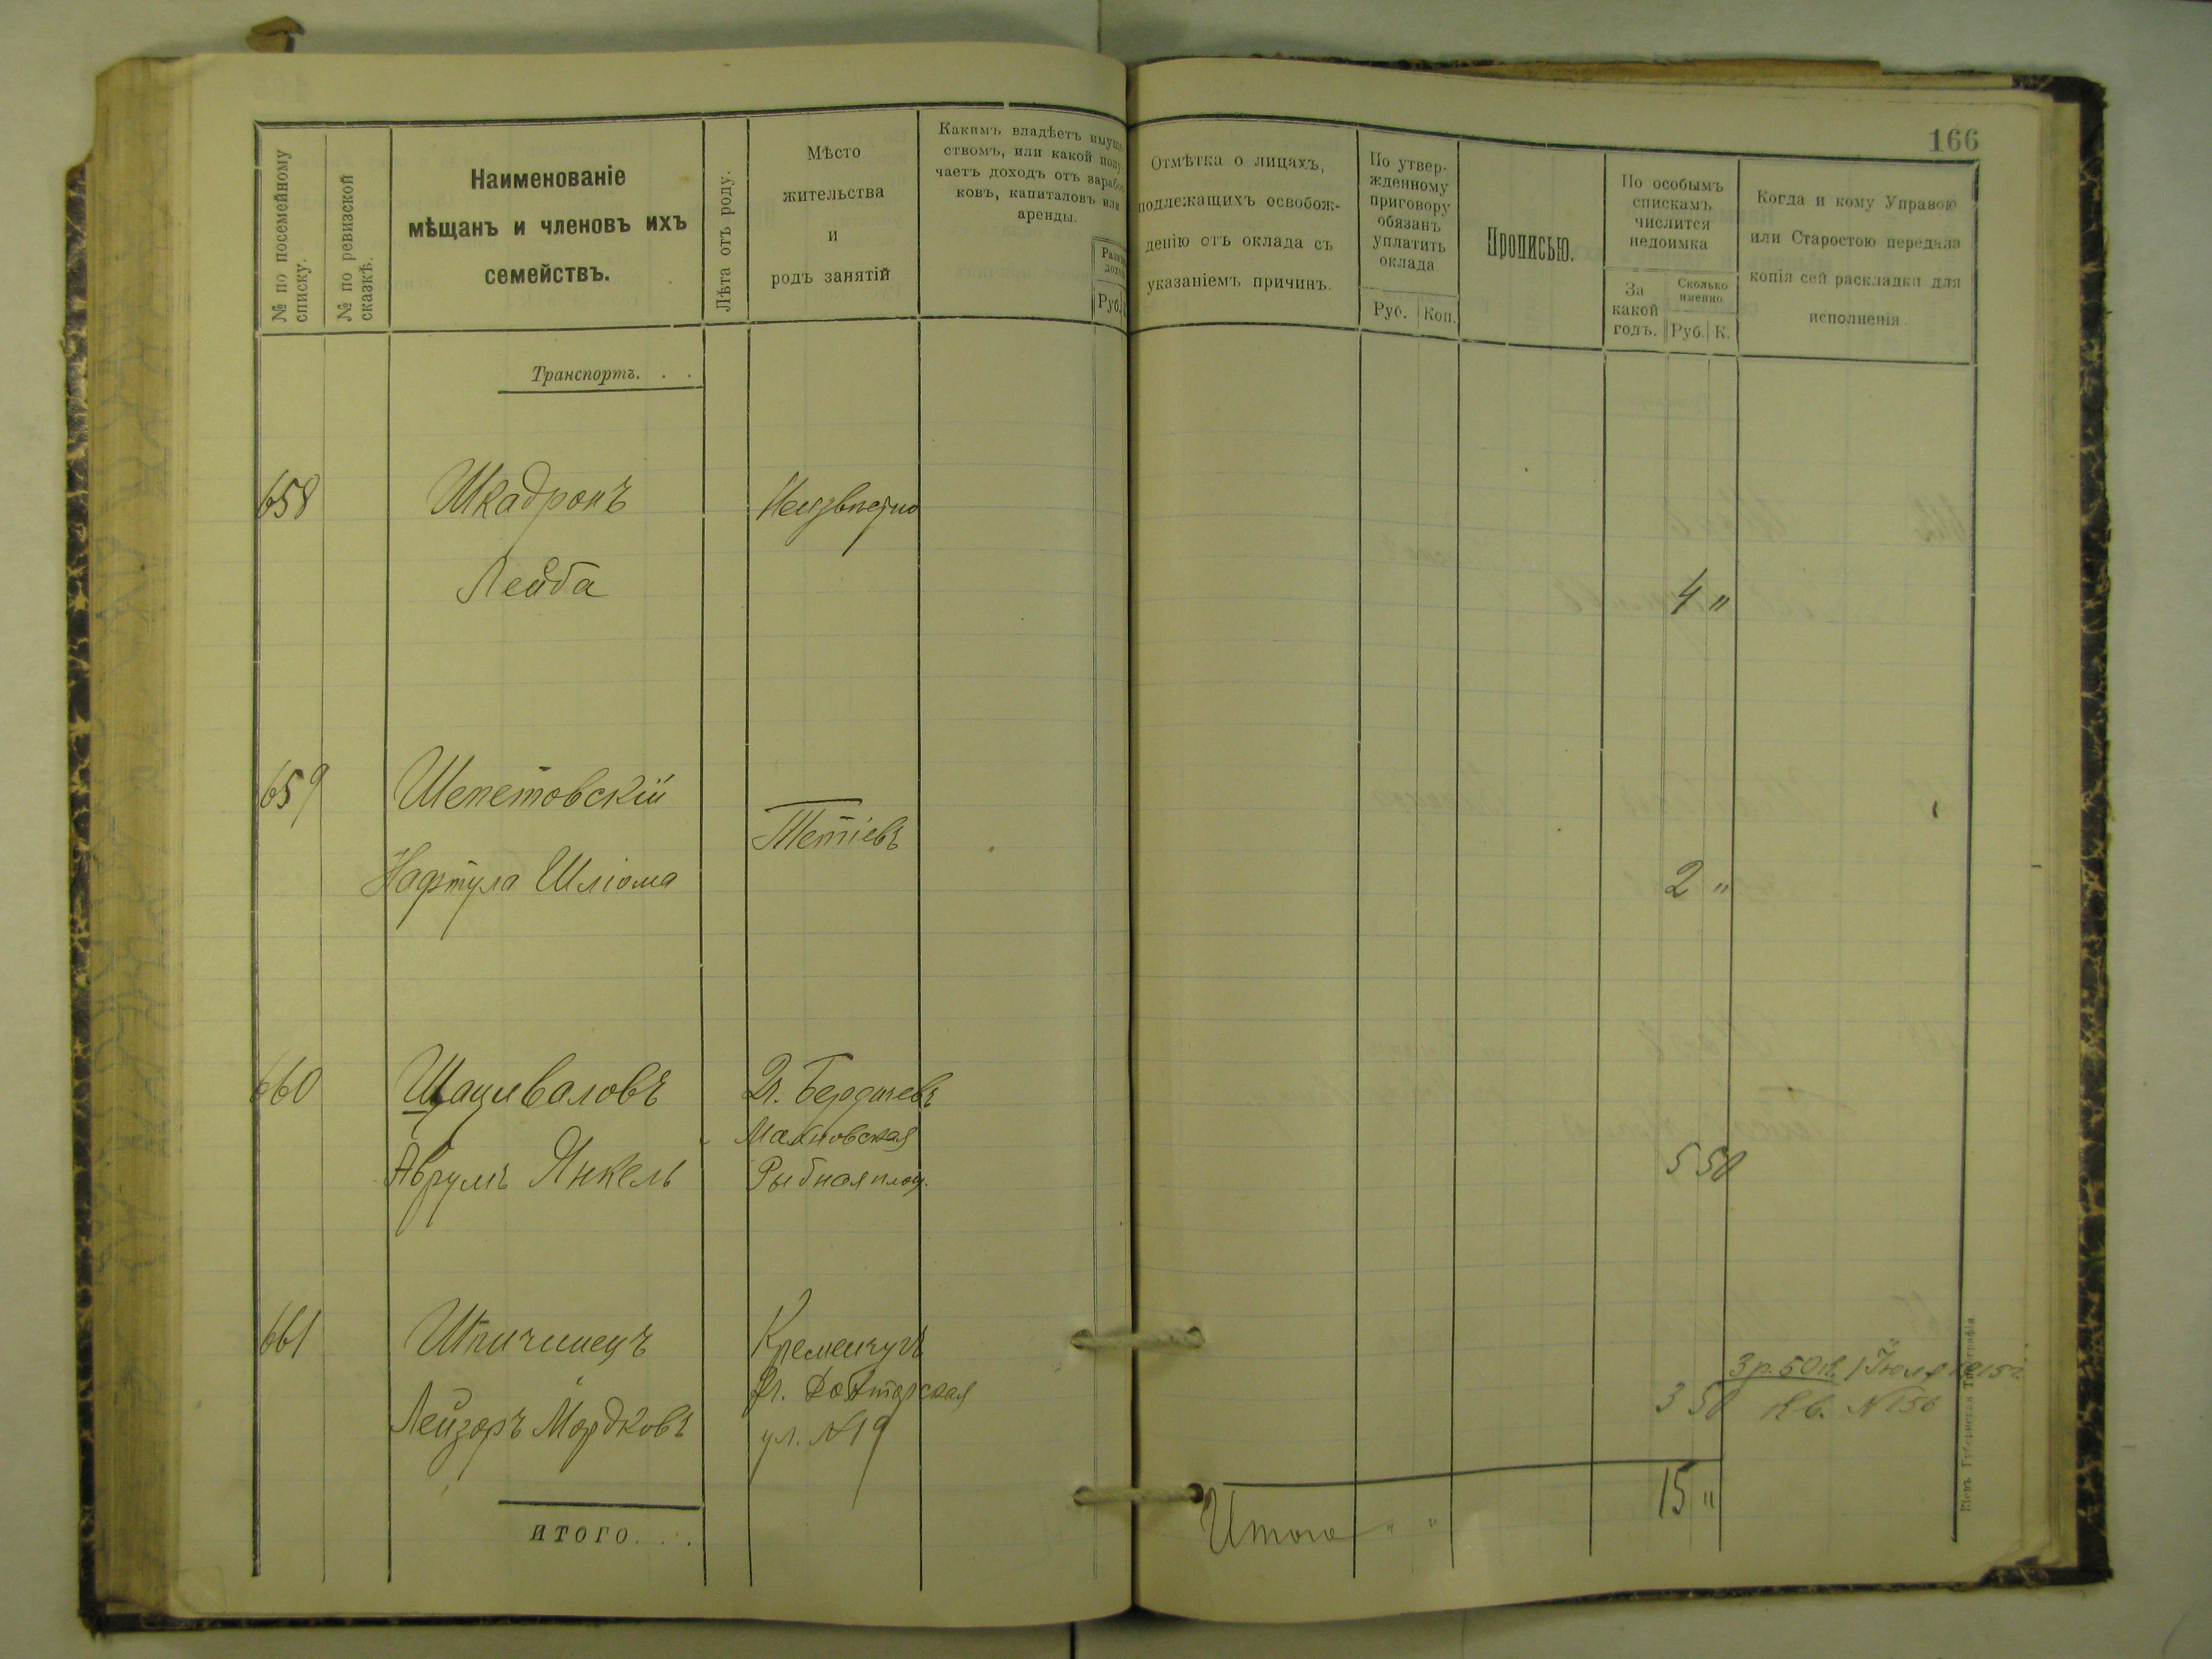 166
№ по посемейному
списку.
№ по ревизской
сказкѣ.
Наименованіе
мѣщанъ и членовъ ихъ
семействъ.
Лѣта отъ роду.
Мѣсто
жительства
и
родъ занятій
Какимъ владѣетъ имуще-
ствомъ, или какой полу-
чаетъ доходъ отъ заработ-
ковъ, капиталовъ или
аренды.
Руб.
Отмѣтка о лицахъ,
подлежащихъ освобож-
денію отъ оклада съ
указаніемъ причинъ.
По утвер-
жденному
приговору
обязанъ
уплатить
оклада
Руб. Коп.
Прописью.
По особымъ
спискамъ
числится
недоимка
За
какой
годъ.
Сколько
именно
Руб. К.
Когда и кому Управою
или Старостою передана
копія сей раскладки для
исполненія
Транспортъ. . .
658 Шкадронъ Неизвѣстно
Лейба 4 "
659 Шепетовскій
Тетіевъ
Нафтула Шліома 2 "
660 Щациваловъ Г. Бердичевъ
Махновская
Аврумъ Янкель Рыбная площ. 5 50
661 Шпичинецъ Кременчугъ
3 р. 50 к. 1 Іюля 1915 г.
Лейзоръ Мордковъ ул. №19 3 50 Кв. №156
15 "
ИТОГО. . .
Итого " "
Кіевъ. Губернская Типографія.